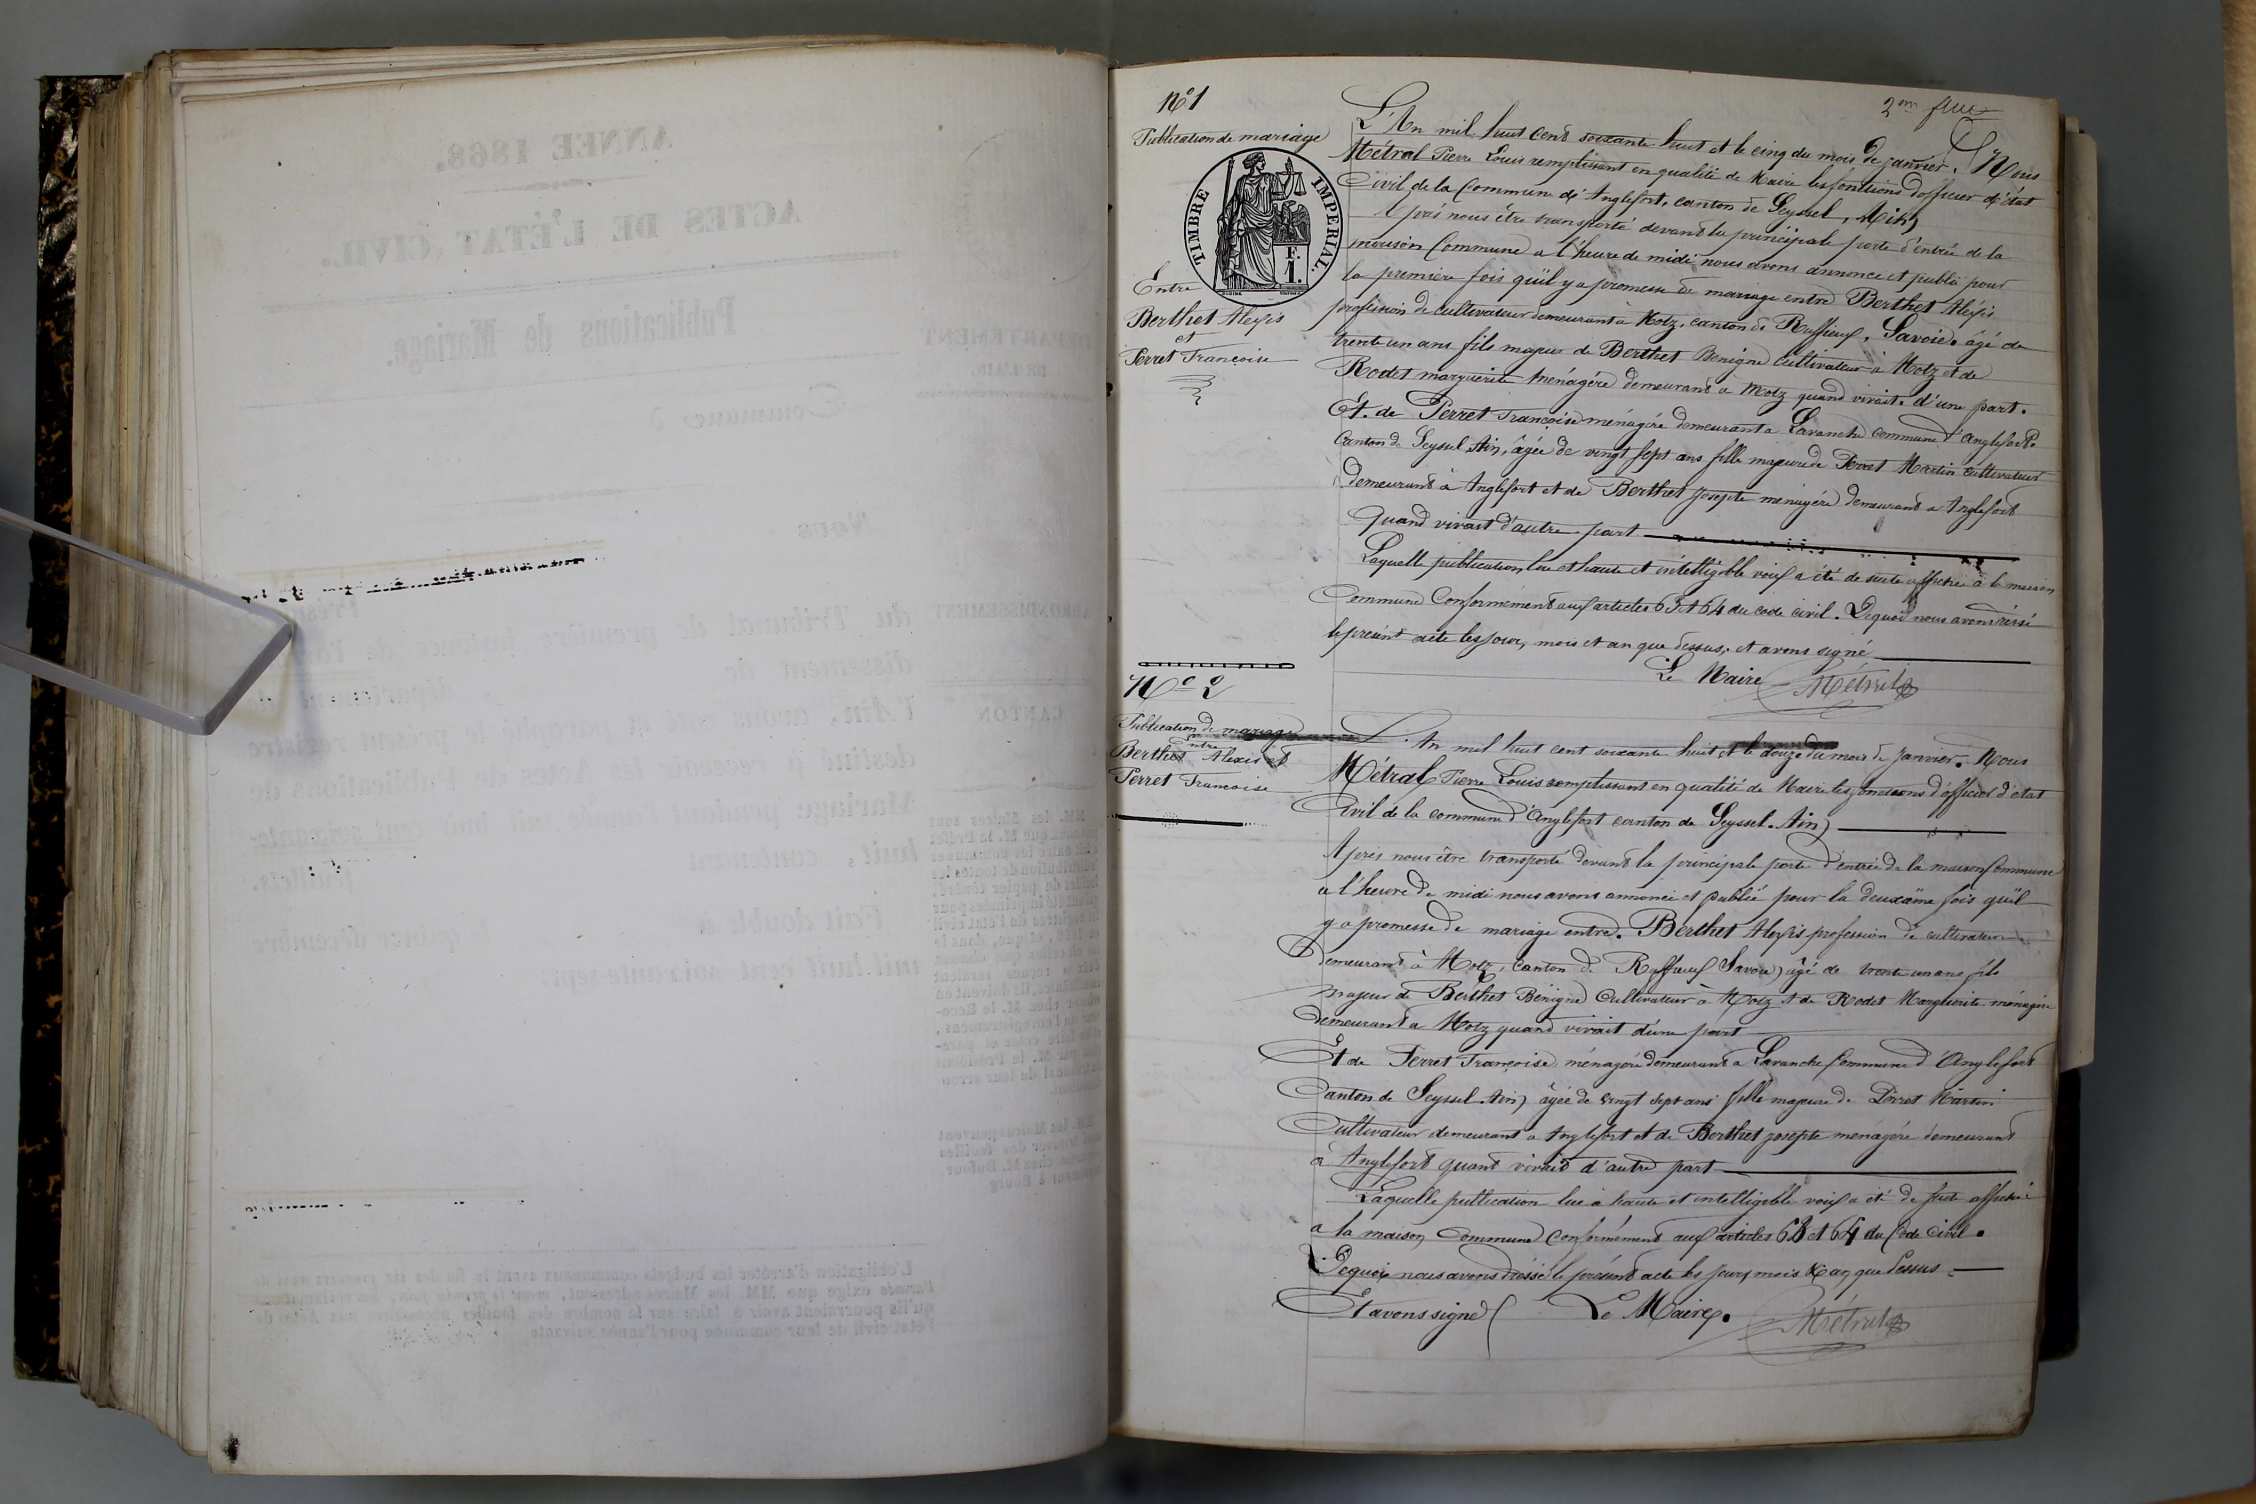 N° 1
Publication de mariage
TIMBRE IMPERIAL.
F.
1.
Entre
Berthet Alexis
et
Perret Françoise
2me
L'An mil huit cent soixante huit et le cinq du mois de janvier. Nous
Métral Pierre Louis remplissant en qualité de Maire les fonctions d'officier d'état
Civil de la Commune d'Anglefort, canton de Seyssel, Ain)
Après nous être transporté devant la principale porte d'entrée de la
maison Commune a l'heure de midi nous avons annoncé et publié pour
la première fois qu'il y a promesse de mariage entre Berthet Aléxis
profession de cultivateur demeurant à Motz, canton de Ruffieux, Savoie, âgé de
trente un ans fils majeur de Berthet Benigne Cultivateur à Motz et de
Rodet marguerite ménagére demeurant a Motz quand vivait. d'une part.
Et. de Perret Françoise ménagére demeurant a Lavanche commune d'Anglefort.
Canton de Seyssel Ain, âgée de vingt sept ans fille majeure de Perret Martin Cultivateur
demeurant à Anglefort et de Berthet Josepte ménagére demeurant a Anglefort
Quand vivait d'autre part
Laquelle publication lue et haute et intélligible voix a été de suite affichée à la maison
Commune Conformément aux articles 63 et 64 du code civil. Dequoi nous avons dressé
le présent acte les jour, mois et an que dessus, et avons signé
Le Maire Métral
N° 2
Publication de mariage
Entre
Berthet Alexis et
Perret Francoise
L'An mil huit cent soixante huit et le douze du mois de Janvier. Nous
Métral Pierre Louis remplissant en qualité de Maire les fonctions d'officier d'état
Civil de la commune d'Anglefort canton de Seyssel. Ain)
Après nous être transporté devant la principale porte d'entrée de la maison Commune
a l'heure de midi nous avons annoncé et publié pour la deuxième fois qu'il
y a promesse de mariage entre. Berthet Alexis profession de cultivateur
demeurant à Motz, canton de Ruffieux Savoie) âgé de trente un ans fils
majeur de Berthet Bénigne Cultivateur à Motz et de Rodet Marguerite ménagére
demeurant a Motz quand vivait d'une part
Et de Perret Françoise ménagére demeurant a Lavanche Commune d'Anglefort
Canton de Seyssel. Ain) âgée de vingt sept ans fille majeure de Perret Martin
Cultivateur demeurant a Anglefort et de Berthet Josepte ménagére demeurant
à Anglefort quant vivait d'autre part
Laquelle publication lue à haute et intelligible voix a été de suite affichée
a la maison Commune Conformément aux articles 63 et 64 du Code Civil.
Dequoi nous avons dressé le présent acte les jour, mois et an que dessus
Et avons signé Le Maire. Métral